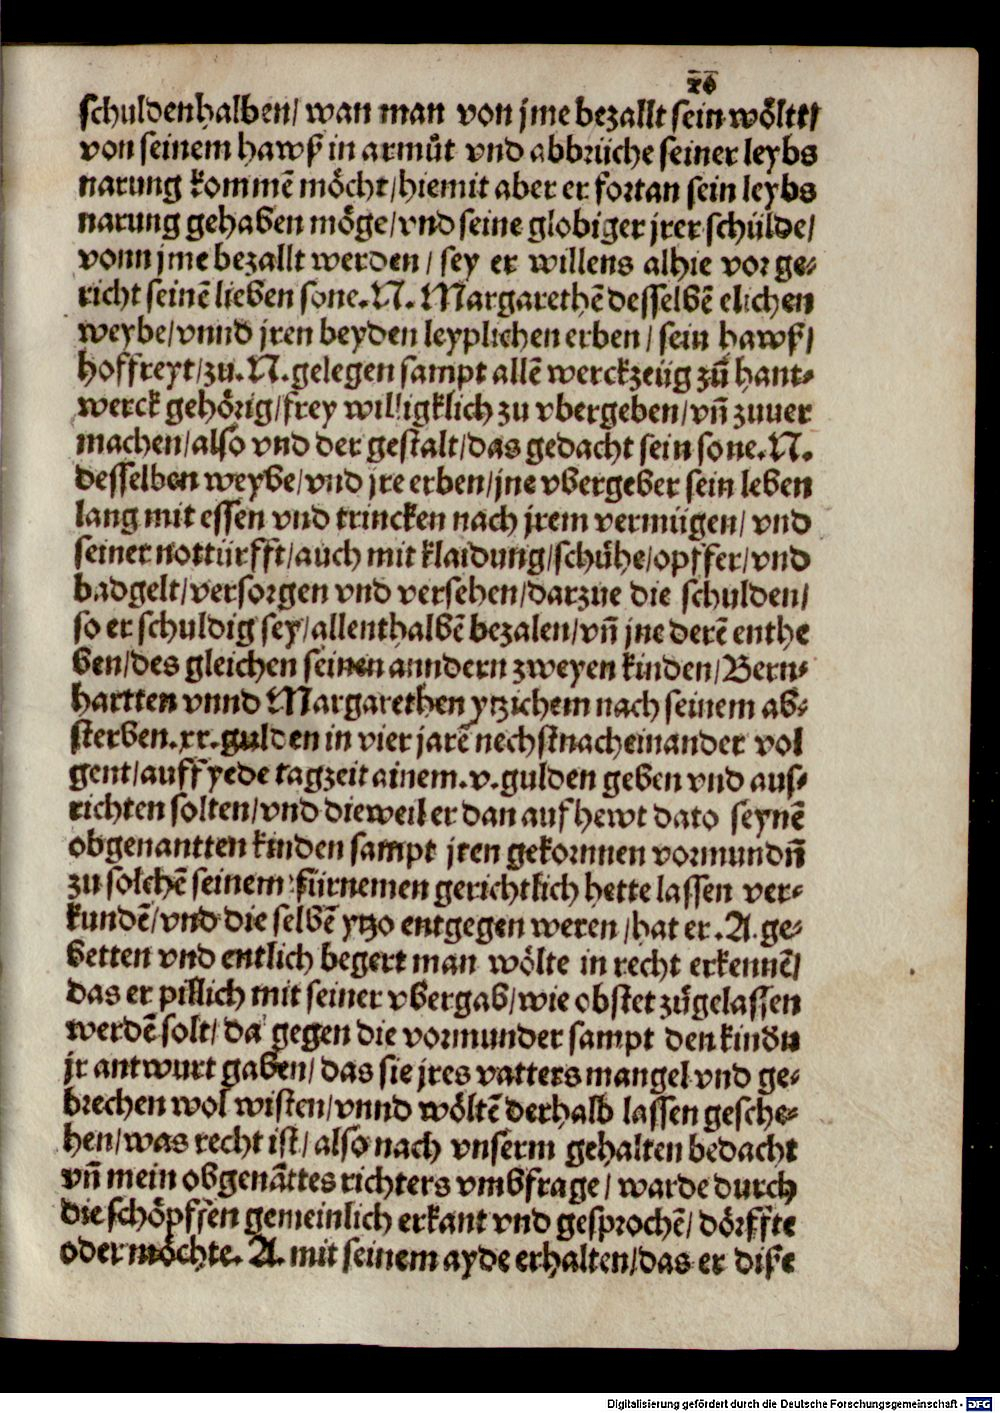 schuldenhalben/ wan man von jme bezallt sein wöltt/
von seinem hawß in armůt vnd abbrüche seiner leybs
narung kommē möcht/hiemit aber er fortan sein leybs
narung gehaben möge/vnd seine globiger jrer schülde/
vonn jme bezallt werden / sey er willens alhie vor ge⸗
richt seinē lieben sone.N. Margarethē desselbē elichen
weybe/vnnd jren beyden leyplichen erben / sein hawß/
hoffreyt/zu.N.gelegen sampt allē werckzeüg zů hant⸗
werck gehörig/frey willigklich zu vbergeben/vn̄ zuuer
machen/also vnd der gestalt/das gedacht sein sone.N.
desselben weybe/vnd jre erben/jne vbergeber sein leben
lang mit essen vnd trincken nach jrem vermügen/ vnd
seiner notturfft/auch mit klaidung/schůhe/opffer/vnd
badgelt/versorgen vnd versehen/darzue die schulden/
so er schuldig sey/allenthalbē bezalen/vn̄ jne derē enthe
ben/des gleichen seinen anndern zweyen kinden/Bern⸗
hartten vnnd Margarethen ytzichem nach seinem ab⸗
sterben.xx.gulden in vier jarē nechstnacheinander vol
gent/auff yede tagzeit ainem.v.gulden geben vnd aus⸗
richten solten/vnd dieweil er dan auf hewt dato seynē
obgenantten kinden sampt jren gekornnen vormundn̄
zu solchē seinem fürnemen gerichtlich hette lassen ver⸗
kundē/vnd die selbē ytzo entgegen weren/hat er.A.ge⸗
betten vnd entlich begert man wölte in recht erkennē/
das er pillich mit seiner vbergab/wie obstet zůgelassen
werdē solt/ da gegen die vormunder sampt den kindn
jr antwurt gaben/ das sie jres vatters mangel vnd ge⸗
brechen wol wisten/vnnd wöltē derhalb lassen gesche⸗
hen/was recht ist/ also nach vnserm gehalten bedacht
vn̄ mein obgenāttes richters vmbfrage/ warde durch
die schöpffen gemeinlich erkant vnd gesprochē/ dörffte
oder möchte. A. mit seinem ayde erhalten/das er diße
Digitalisierung gefördert durch die Deutsche Forschungsgemeinschaft - DFG